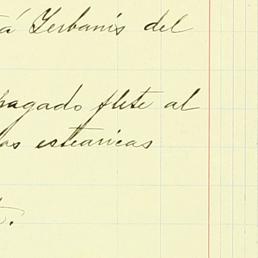 tá Yerbanís del
pagado flete al
las estearicas